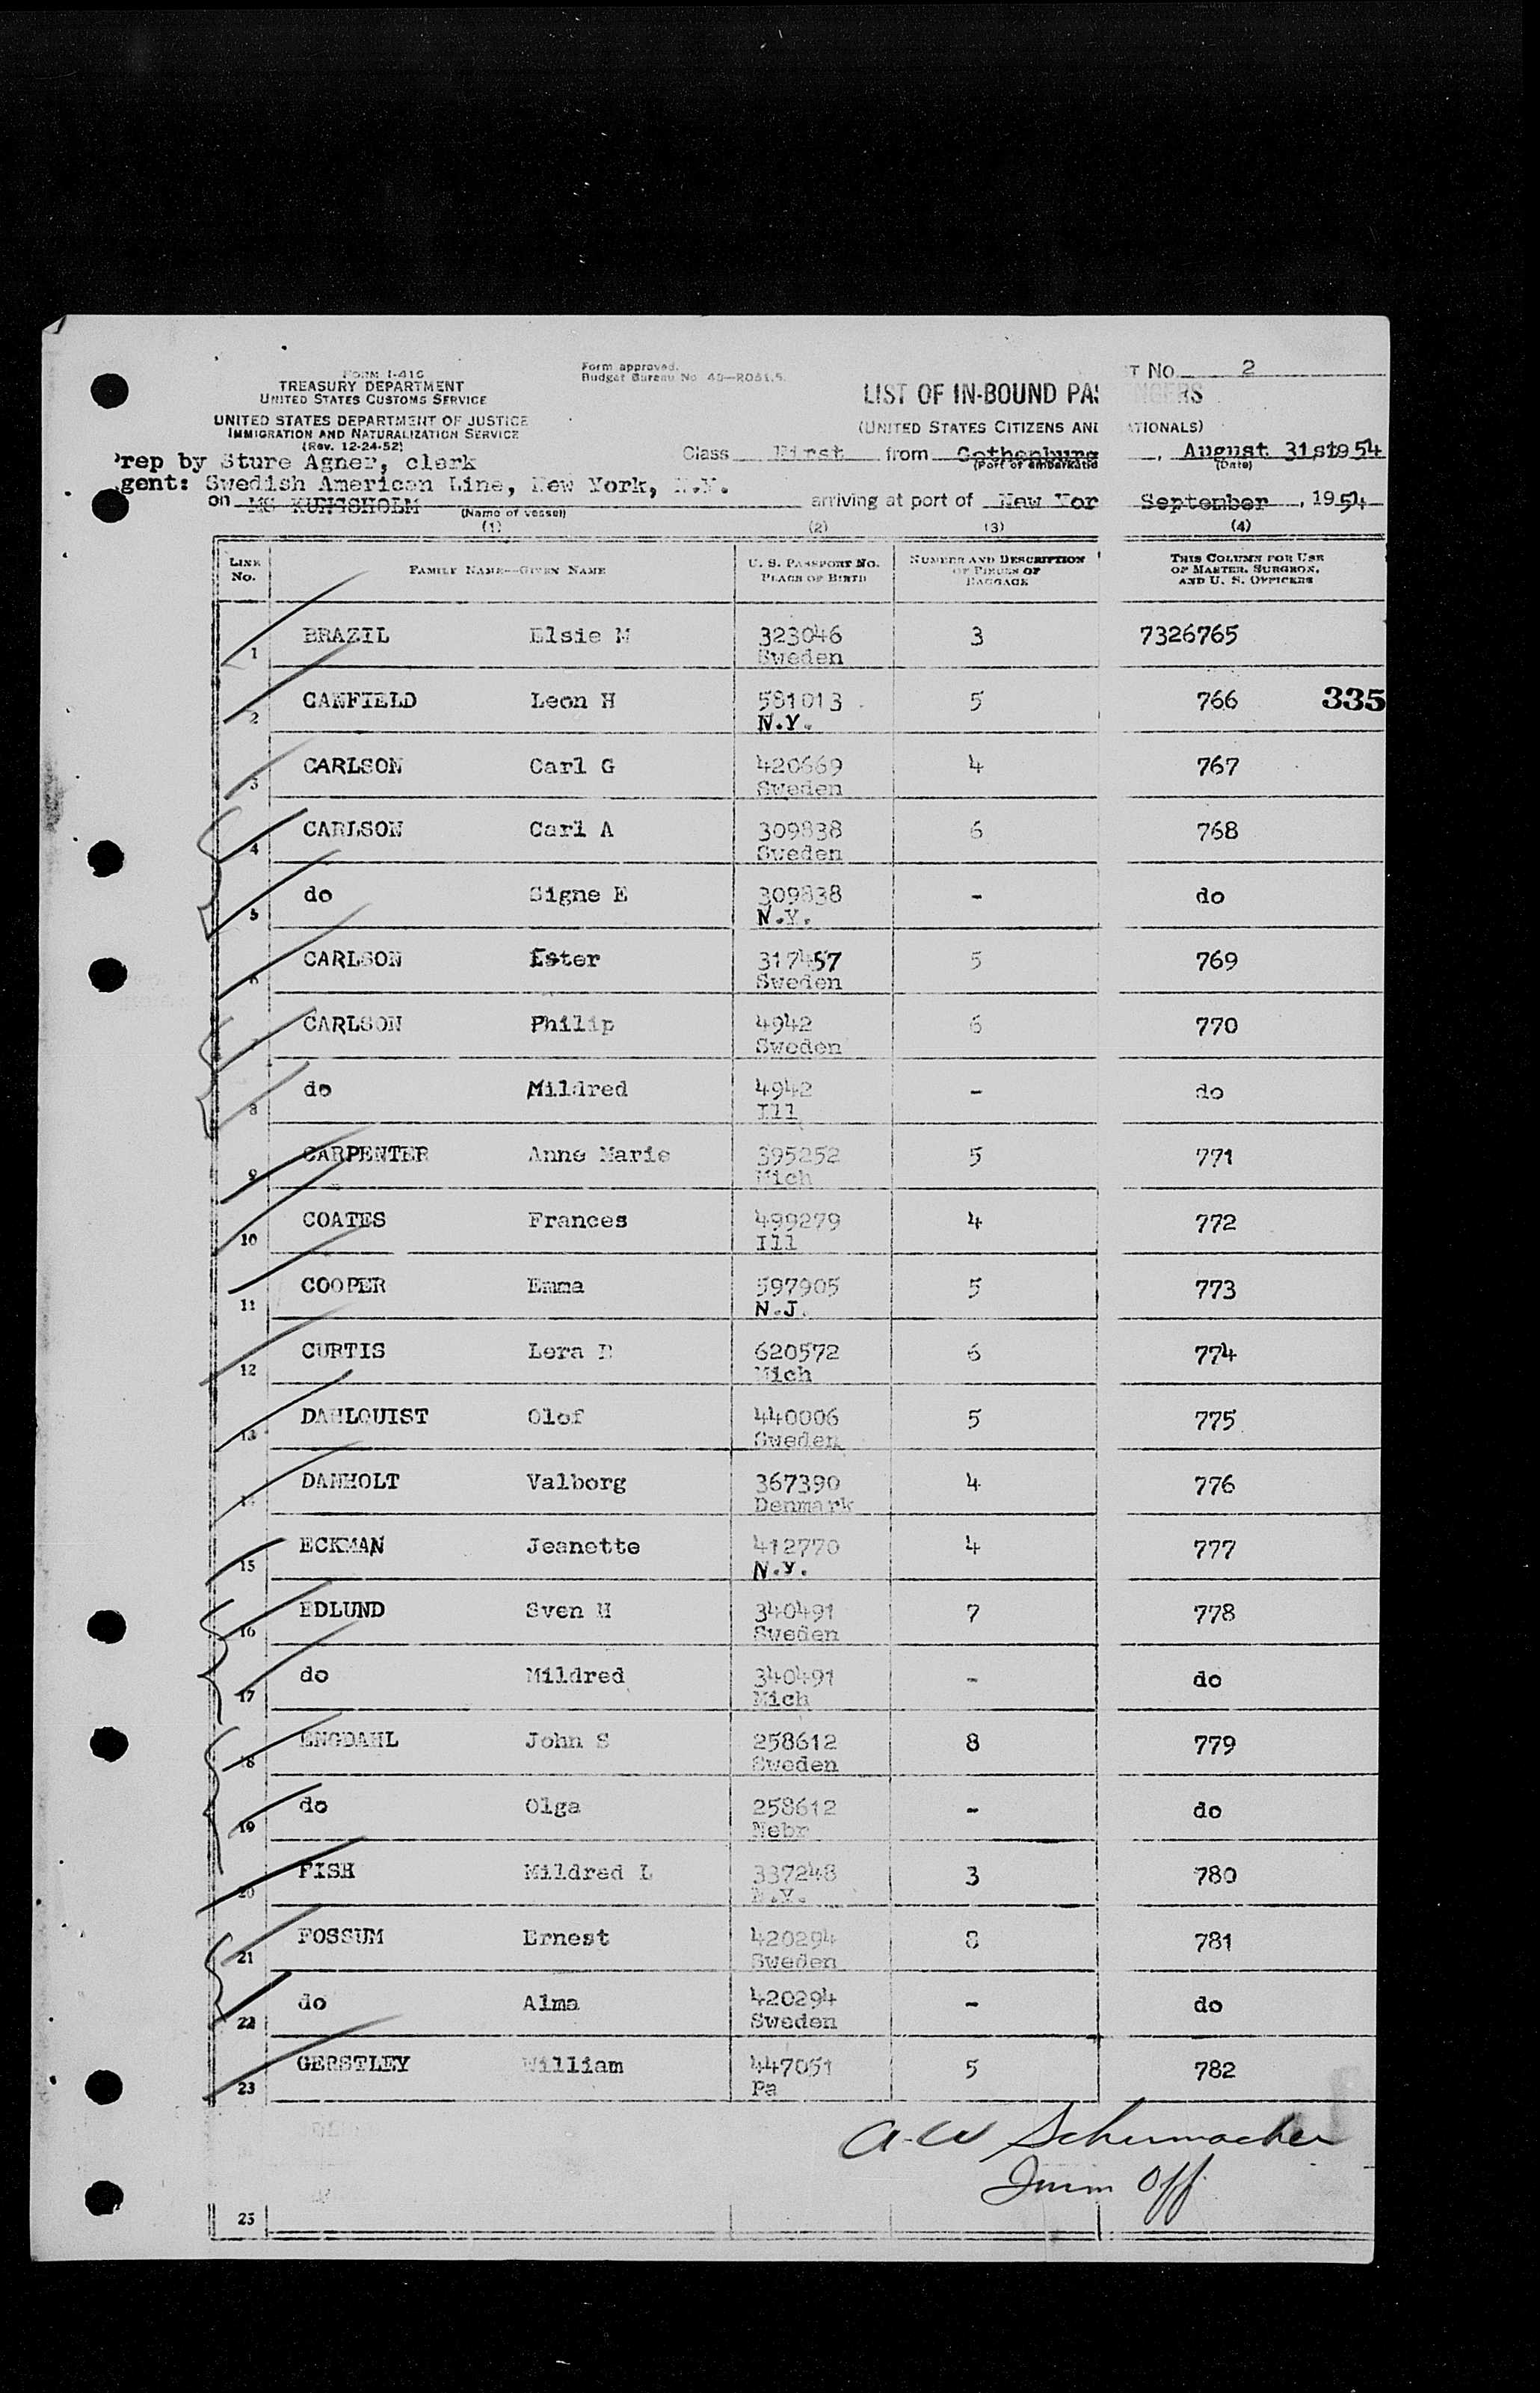 FORM I-416
TREASURY DEPARTMENT
UNITED STATES CUSTOMS SERVICE
UNITED STATES DEPARTMENT OF JUSTICE
IMMIGRATION AND NATURALIZATION SERVICE
(Rev. 12-24-52)
Form approved.
Budget Bureau No. 43—R031.5.
T No. 2
LIST OF IN-BOUND PAS NGERS
(UNITED STATES CITIZENS AND ATIONALS)
Prep by Sture Agner, clerk
Class First from Gothenburg, August 31st 1954
(Port of embarkatio (Date)
gent: Swedish American Line, New York, N.Y.
on MS KUNGSHOLM arriving at port of New Yor September, 1954
(Name of vessel)
(1) (2) (3) (4)
LINE No. FAMILY NAME—GIVEN NAME U. S. PASSPORT NO. PLACE OF BIRTH NUMBER AND DESCRIPTION OF PIECES OF BAGGAGE THIS COLUMN FOR USE OF MASTER, SURGEON, AND U. S. OFFICERS
1 BRAZIL Elsie M 323046 3 7326765
Sweden
2 CANFIELD Leon H 581013 5 766 335
N.Y.
3 CARLSON Carl G 420669 4 767
Sweden
4 CARLSON Carl A 309838 6 768
Sweden
5 do Signe E 309838 - do
N.Y.
6 CARLSON Ester 317457 5 769
Sweden
7 CARLSON Philip 4942 6 770
Sweden
8 do Mildred 4942 - do
Ill
9 CARPENTER Anne Marie 395252 5 771
Mich
10 COATES Frances 499279 4 772
Ill
11 COOPER Emma 597905 5 773
N.J.
12 CURTIS Lera 620572 6 774
Mich
13 DAHLQUIST Olof 440006 5 775
Sweden
14 DANHOLT Valborg 367390 4 776
Denmark
15 ECKMAN Jeanette 412770 4 777
N.Y.
16 EDLUND Sven H 340491 7 778
Sweden
17 do Mildred 340491 - do
Mich
18 ENGDAHL John S 258612 8 779
Sweden
19 do Olga 258612 - do
Nebr
20 FISH Mildred L 337248 3 780
N.Y.
21 FOSSUM Ernest 420294 8 781
Sweden
22 do Alma 420294 - do
Sweden
23 GERSTLEY William 447051 5 782
Pa
A-W Schumacher
Imm Off
25